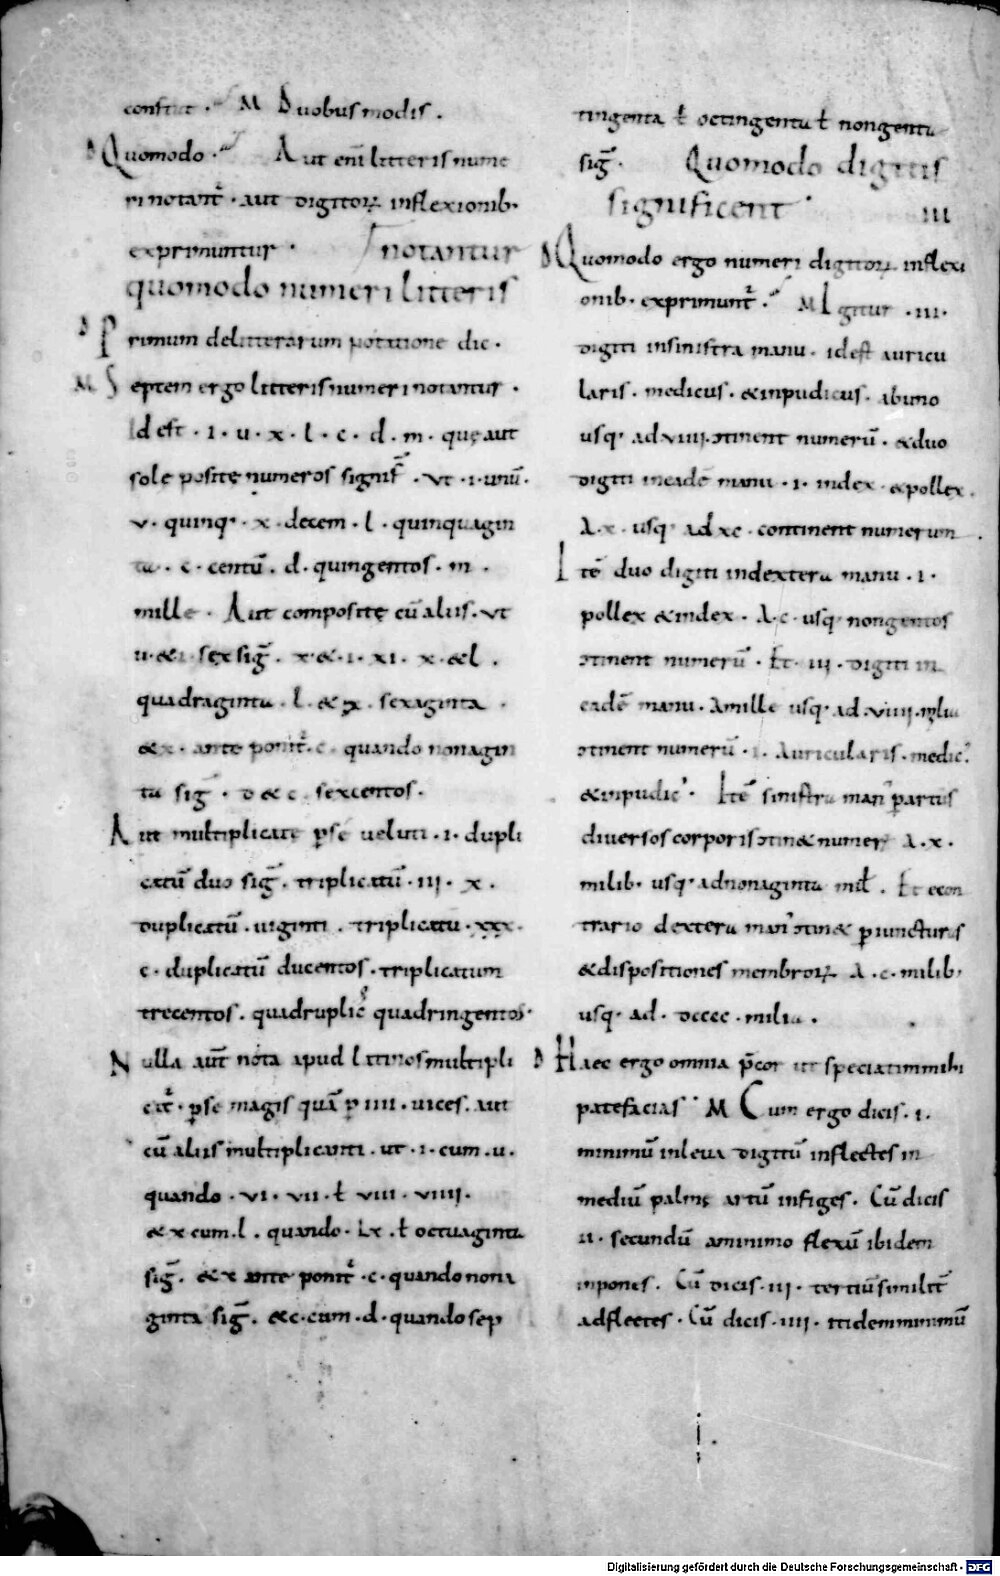 constat · M Duobus modis ·
D Quomodo · Aut eni͞ litteris nume
ri notant᷑ · aut digitoꝝ inflexionib·
exprimuntur · notantur
quomodo numeri litteris
D Primum de litterarum notatione dic ·
M Septem ergo litteris numeri notantur ·
Id est · i · u · x · l · c · d · m · quę aut
sole positę numeros signif̄ · vt · i · unū ·
v · quinq· · x · decem · l · quinquagin
ta · c · centū · d · quingentos · m ·
mille · Aut compositę cū aliis · vt
u · & i · sex sig̅ · x · & · i · xi · x · & l ·
quadraginta · l · & x · sexaginta ·
& x · ante ponit᷑ · c · quando nonagin
ta sig̅ · d & c · sexcentos ·
Aut multiplicate ꝑse veluti · i · dupli
catū duo sig̅ · triplicatū · iii · x ·
duplicatū · uiginti · triplicatū · xxx ·
c · duplicatū ducentos · triplicatum
trecentos · quadruplic̄ quadringentos ·
Nulla aut̄ nota apud latinos multipli
cat᷑ · ꝑse magis quā ꝑ iiii · uices · aut
cū aliis multiplicanti · ut · i · cum · u ·
quando · vi · vii · ł viii · viiii ·
& x cum · l · quando · lx · ł octuaginta
sig̅ · & x ante ponit᷑ · c · quando nona
ginta sig̅ · & c · cum · d · quando sep
tingenta ł octingenta ł nongenta
sig̅ · Quomodo digitis
significent · III
D Quomodo ergo numeri digitoꝝ inflexi
onib· exprimunt᷑ · M Igitur · iii ·
digiti in sinistra manu · id est auricu
laris · medicus · & inpudicus · ab uno
usq· ad viiii · ɔtinent numerū · & duo
digiti in eadē manu · i · index · & pollex ·
A · x · usq· ad xc · continent numerum
Itē duo digiti in dextera manu · i ·
pollex & index · A · c · usq· nongentos
ɔtinent numerū · Et · iii · digiti in
eadē manu · A mille usq· ad · viiii · milia
ɔtinent numerū · i · Auricularis · medic᾿
& inpudic᾿ · Itē sinistra man᾿ partus
diversos corporis ɔtin& numer A · x ·
milib· usq· ad nonaginta mił · Et econ
trario dextera man᾿ ɔtin& ꝑ iuncturas
& dispositiones membroꝝ A · c · milib·
usq· ad · dcccc · milia ·
D Haec ergo omnia p̄cor ut speciatim mihi
patefacias M Cum ergo dicis · i ·
minimū in leua digitū inflectes in
mediū palmę artū infiges · Cū dicis
ii · secundū a minimo flexū ibidem
inpones · Cū dicis · iii · tertiū similit᷑
adflectes · Cū dicis · iiii · itidem minimū
i ·
Digitalisierung gefördert durch die Deutsche Forschungsgemeinschaft - DFG